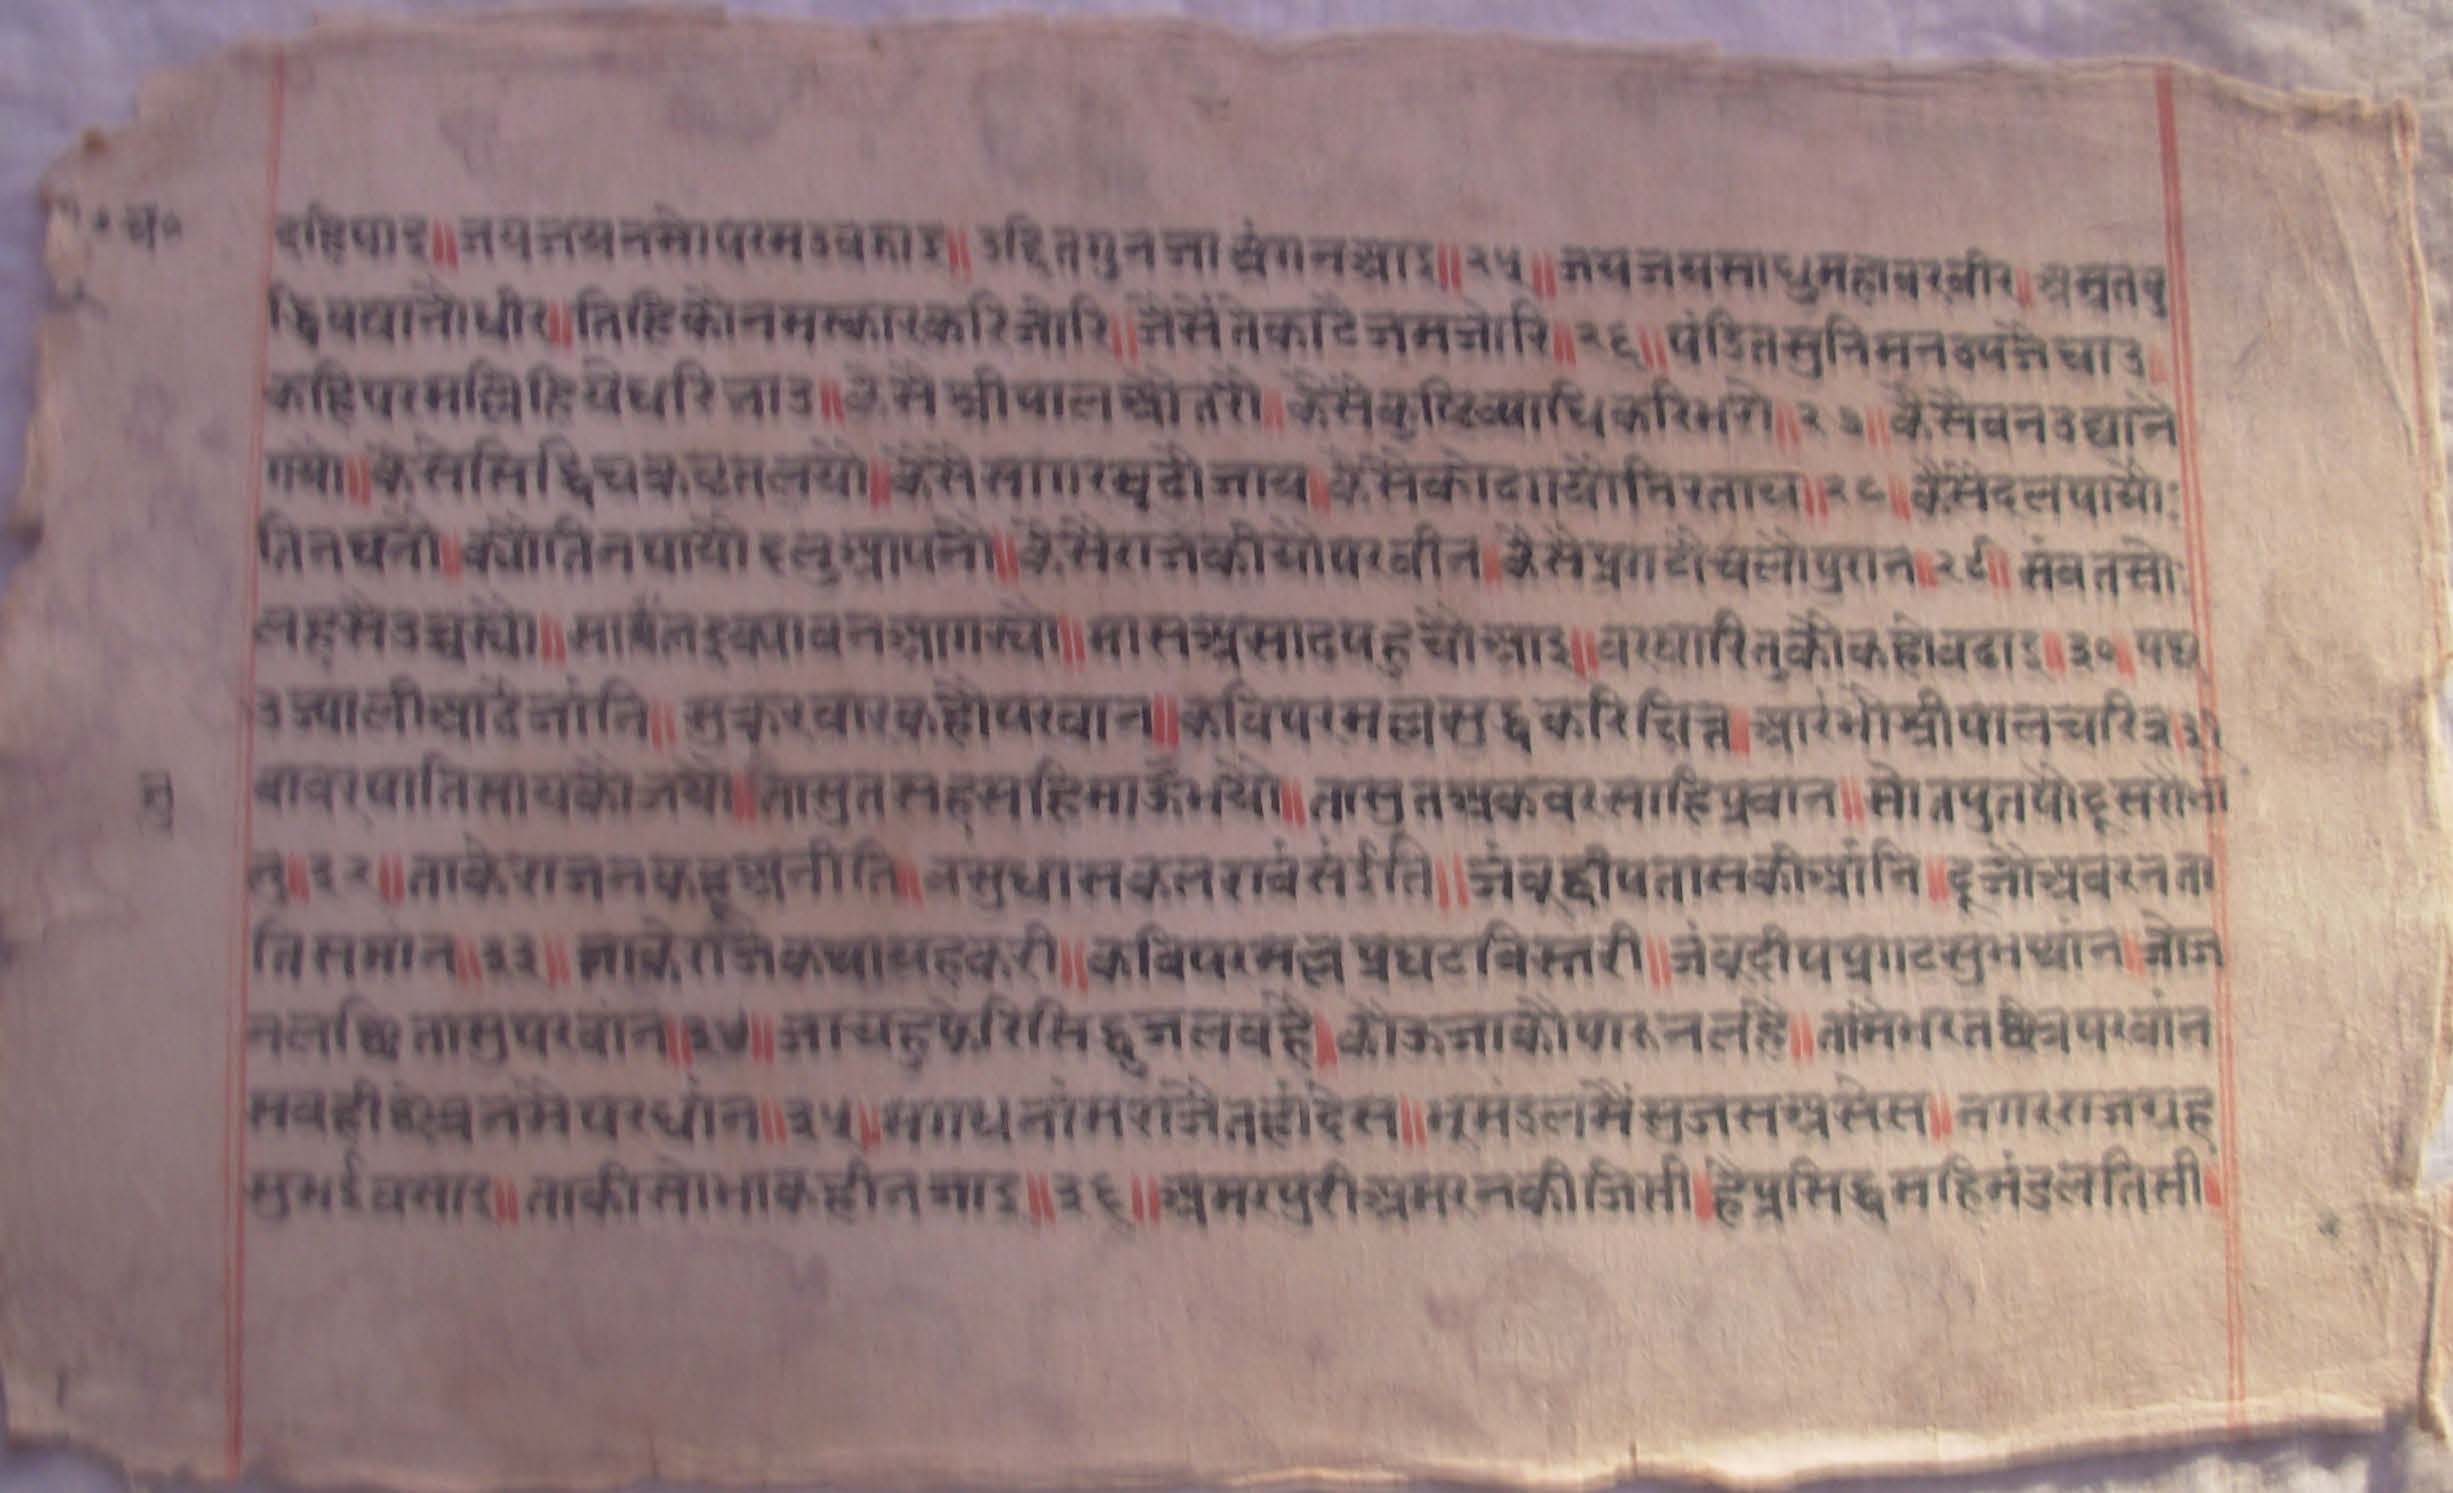 दहिपाइ॥जयजयनमोपरमउवकाइ॥उदितगुनजा अंगनआइ॥२५॥जयजयसाधुमहावरबीर॥अमृतबु
द्धिपद्यानोधीर॥तिहिकौनमस्कारकरिजोरि॥जैसेंतेकाटैजमजोरि॥२६॥पंडितसुनिमनउपजैचाउ॥
कहिपरमल्लिहियेधरिजाउ॥कैसैश्रीपालऔतरौ॥कैसैंकुष्टिव्याधिकरिभरौ॥२७॥कैसैबनउद्यांने
गयो॥कैसेसिद्धिचक्रव्रतलयो॥कैसैसागरबूढौजाय॥कैसैकोढगयौनिरताय॥२८॥कैसैंदलपायौ
तिनघनौ॥क्यौंतिनपायौइलुआपनौ॥कैसैराजकीयोपरवीन॥कैसेप्रगटौचलौपुरान॥२९॥संवतसो
लहसैउच्चस्यो॥सावंतइक्यावनआगस्यो॥मासअसाढपहुचौआइ॥वरषारितुकौकहोवढाइ॥३०॥पछ
उज्यालीआठैजांनि॥सुकरवारकहौपरवान॥कविपरमल्लसुद्धकरिचित्त॥आरंभोश्रीपालचरित्र३१
बाबरपातिसायकौजयो॥तासुतसहसहिमाऊँभयो॥तासुतअकवरसाहिप्रवान॥सोतपुतपोदूसरोभां
नु॥३२॥ताकेराजनकहूअनीति॥वसुधासकलरावंसंईति॥जंबूद्वीपतासकीआंनि॥दूजोअवरनता
तिसमांन॥३३॥ताकेराजेकथायहकरी॥कविपरमल्लप्रघटविस्तरी॥जंबूदीपप्रगटसुभथांन॥जोज
नलछितासुपरवांन॥३४॥जाचहुफेरिसिंधुजलवहै॥कौऊजाकौपारुनलहै॥तामेंभरतछैत्रपरवांन
सबहीछेत्रनमैपरधांन॥३५॥मगधनांमराजैतहांदेस॥भूमंडलमैंसुजसअसेस॥नगरराजग्रह
सुभईवसाइ॥ताकीसोभाकहीनजाइ॥३६॥अमरपुरीअमरनकीजिसी॥हैप्रसिद्धमहिमंडलतिसी॥